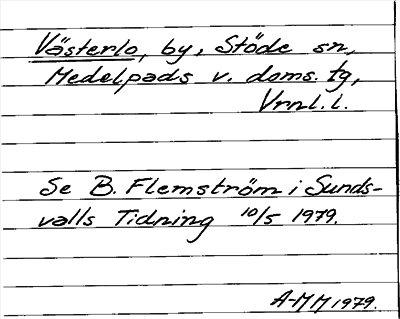 Västerlo, by, Stöde sn,
Medelpads v. doms. tg,
Vrnl. l.
Se B. Flemström i Sunds-
valls Tidning 10/5 1979.
A-MM 1979.